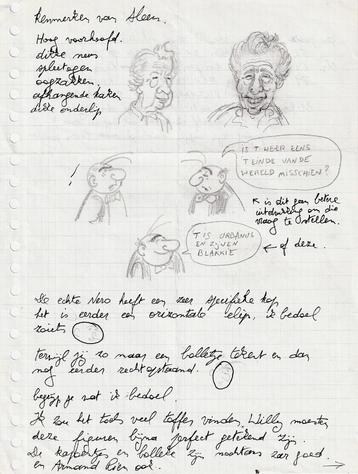 Kenmerken van Sleen.
Hoog voorhoofd.
dikke neus
spleetogen
oogzakken,
afhangende kaken
dikke onderlip
!
IS 'T WEER EENS
T EINDE VAN DE
WERELD MISSCHIEN?
← is dit geen betere
uitdrukking om die
vraag te stellen.
'T IS URBANUS
EN ZIJVEN
BLAKKIE
← of deze.
De echte Nero heeft een zeer specifieke kop
het is eerder een orizontale elips, ik bedoel
zoiets
terwijl jij zo maar een bolletje tekent en dan
nog eerder rechtopstaand.
begrijp je wat ik bedoel.
Ik zou het toch veel toffer vinden, Willy moesten
deze figuren bijna perfect getekend zijn.
De kapoentjes en bolleke zijn nochtans zeer goed.
en Armand Pien ook.
→